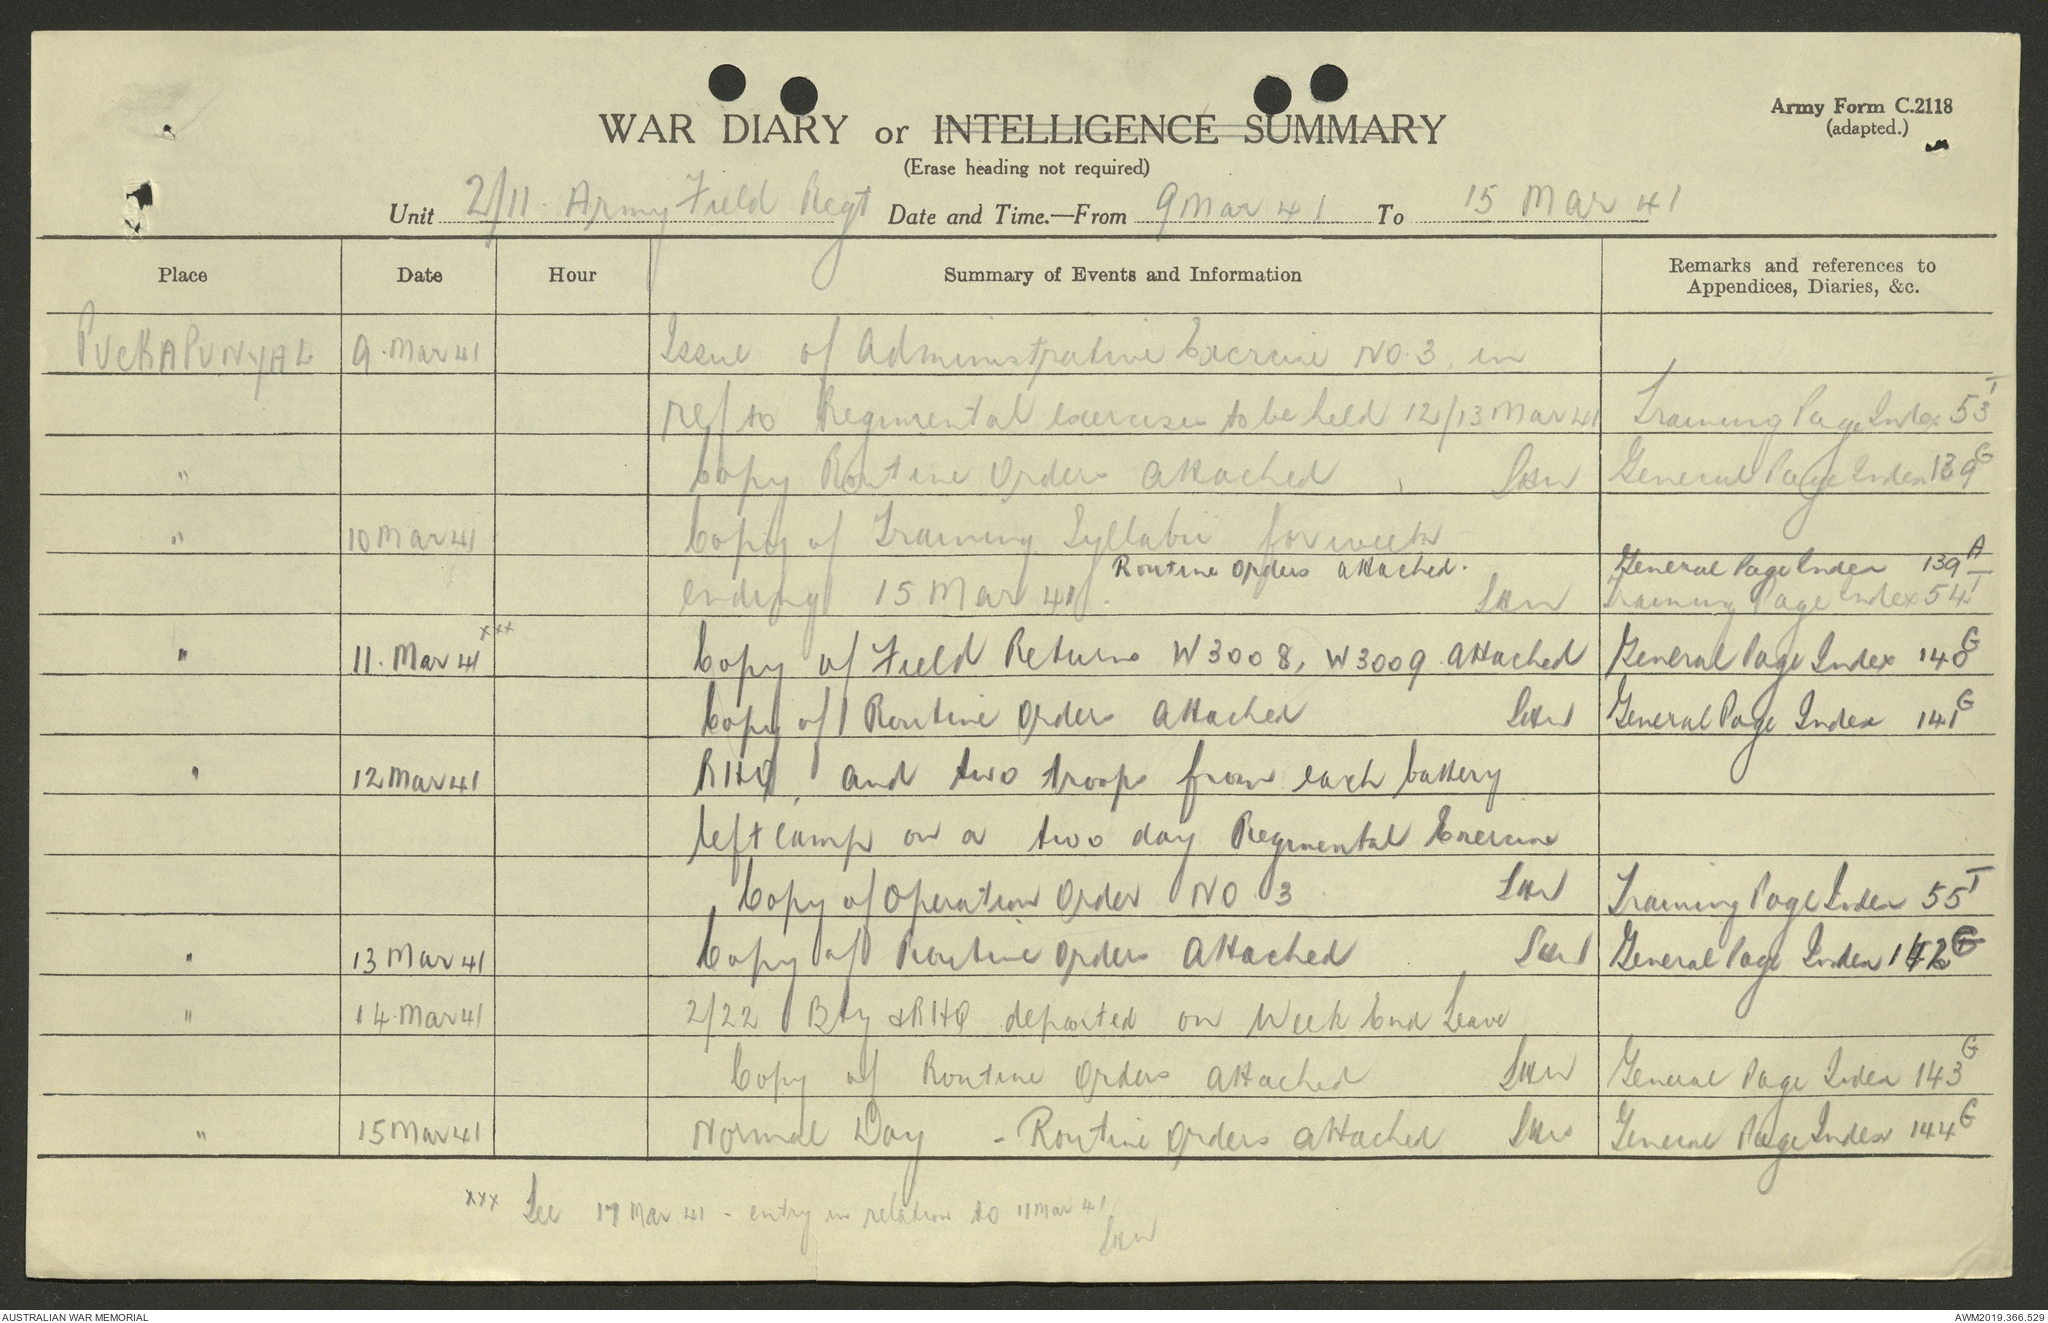 WAR DIARY or INTELLIGENCE SUMMARY
(Erase heading not required)
Army Form C.2118
(adapted.)
Unit 2/11 Army Field Regt Date and Time.—From 9 Mar 41 To 15 Mar 41
Place Date Hour Summary of Events and Information Remarks and references to Appendices, Diaries, &c.
PUCKAPUNYAL 9 Mar 41 Issue of Administrative Exercise NO. 3. in
ref to Regimental exercises to be held 12/13 Mar 41 Training Page Index 53 T
" Copy Routine Orders attached General Page Index 139 G
" 10 Mar 41 Copy of Training Syllabii for week
Routine Orders attached. General Page Index 139 A
ending 15 Mar 41. Training Page Index 54 T
" 11. Mar 41 xxx Copy of Field Returns W3008, W3009 attached General Page Index 140 G
Copy of Routine Orders attached General Page Index 141 G
" 12 Mar 41 RHQ, and two troops from each battery
left camp on a two day Regimental Exercise
Copy of Operation Order NO 3 Training Page Index 55 T
" 13 Mar 41 Copy of Routine Orders attached General Page Index 142 G
" 14. Mar 41 2/22 Bty & RHQ departed on Week End Leave
Copy of Routine Orders attached General Page Index 143 G
" 15 Mar 41 Normal Day - Routine Orders attached General Page Index 144 G
xxx See 17 Mar 41 - entry in relation to 11 Mar 41
AUSTRALIAN WAR MEMORIAL
AWM2019.366.529